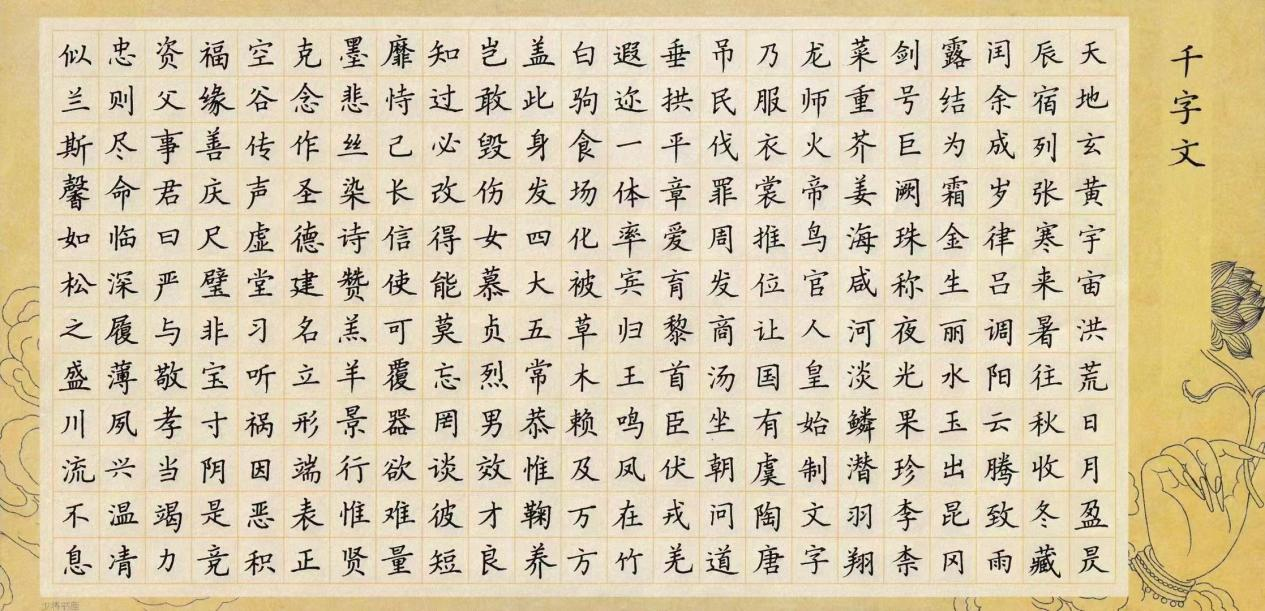 千字文
天地玄黄宇宙洪荒日月盈昃
辰宿列张寒来暑往秋收冬藏
闰余成岁律吕调阳云腾致雨
露结为霜金生丽水玉出昆冈
剑号巨阙珠称夜光果珍李柰
菜重芥姜海咸河淡鳞潜羽翔
龙师火帝鸟官人皇始制文字
乃服衣裳推位让国有虞陶唐
吊民伐罪周发商汤坐朝问道
垂拱平章爱育黎首臣伏戎羌
遐迩一体率宾归王鸣凤在竹
白驹食场化被草木赖及万方
盖此身发四大五常恭惟鞠养
岂敢毁伤女慕贞烈男效才良
知过必改得能莫忘罔谈彼短
靡恃己长信使可覆器欲难量
墨悲丝染诗赞羔羊景行惟贤
克念作圣德建名立形端表正
空谷传声虚堂习听祸因恶积
福缘善庆尺璧非宝寸阴是竞
资父事君曰严与敬孝当竭力
忠则尽命临深履薄夙兴温清
似兰斯馨如松之盛川流不息